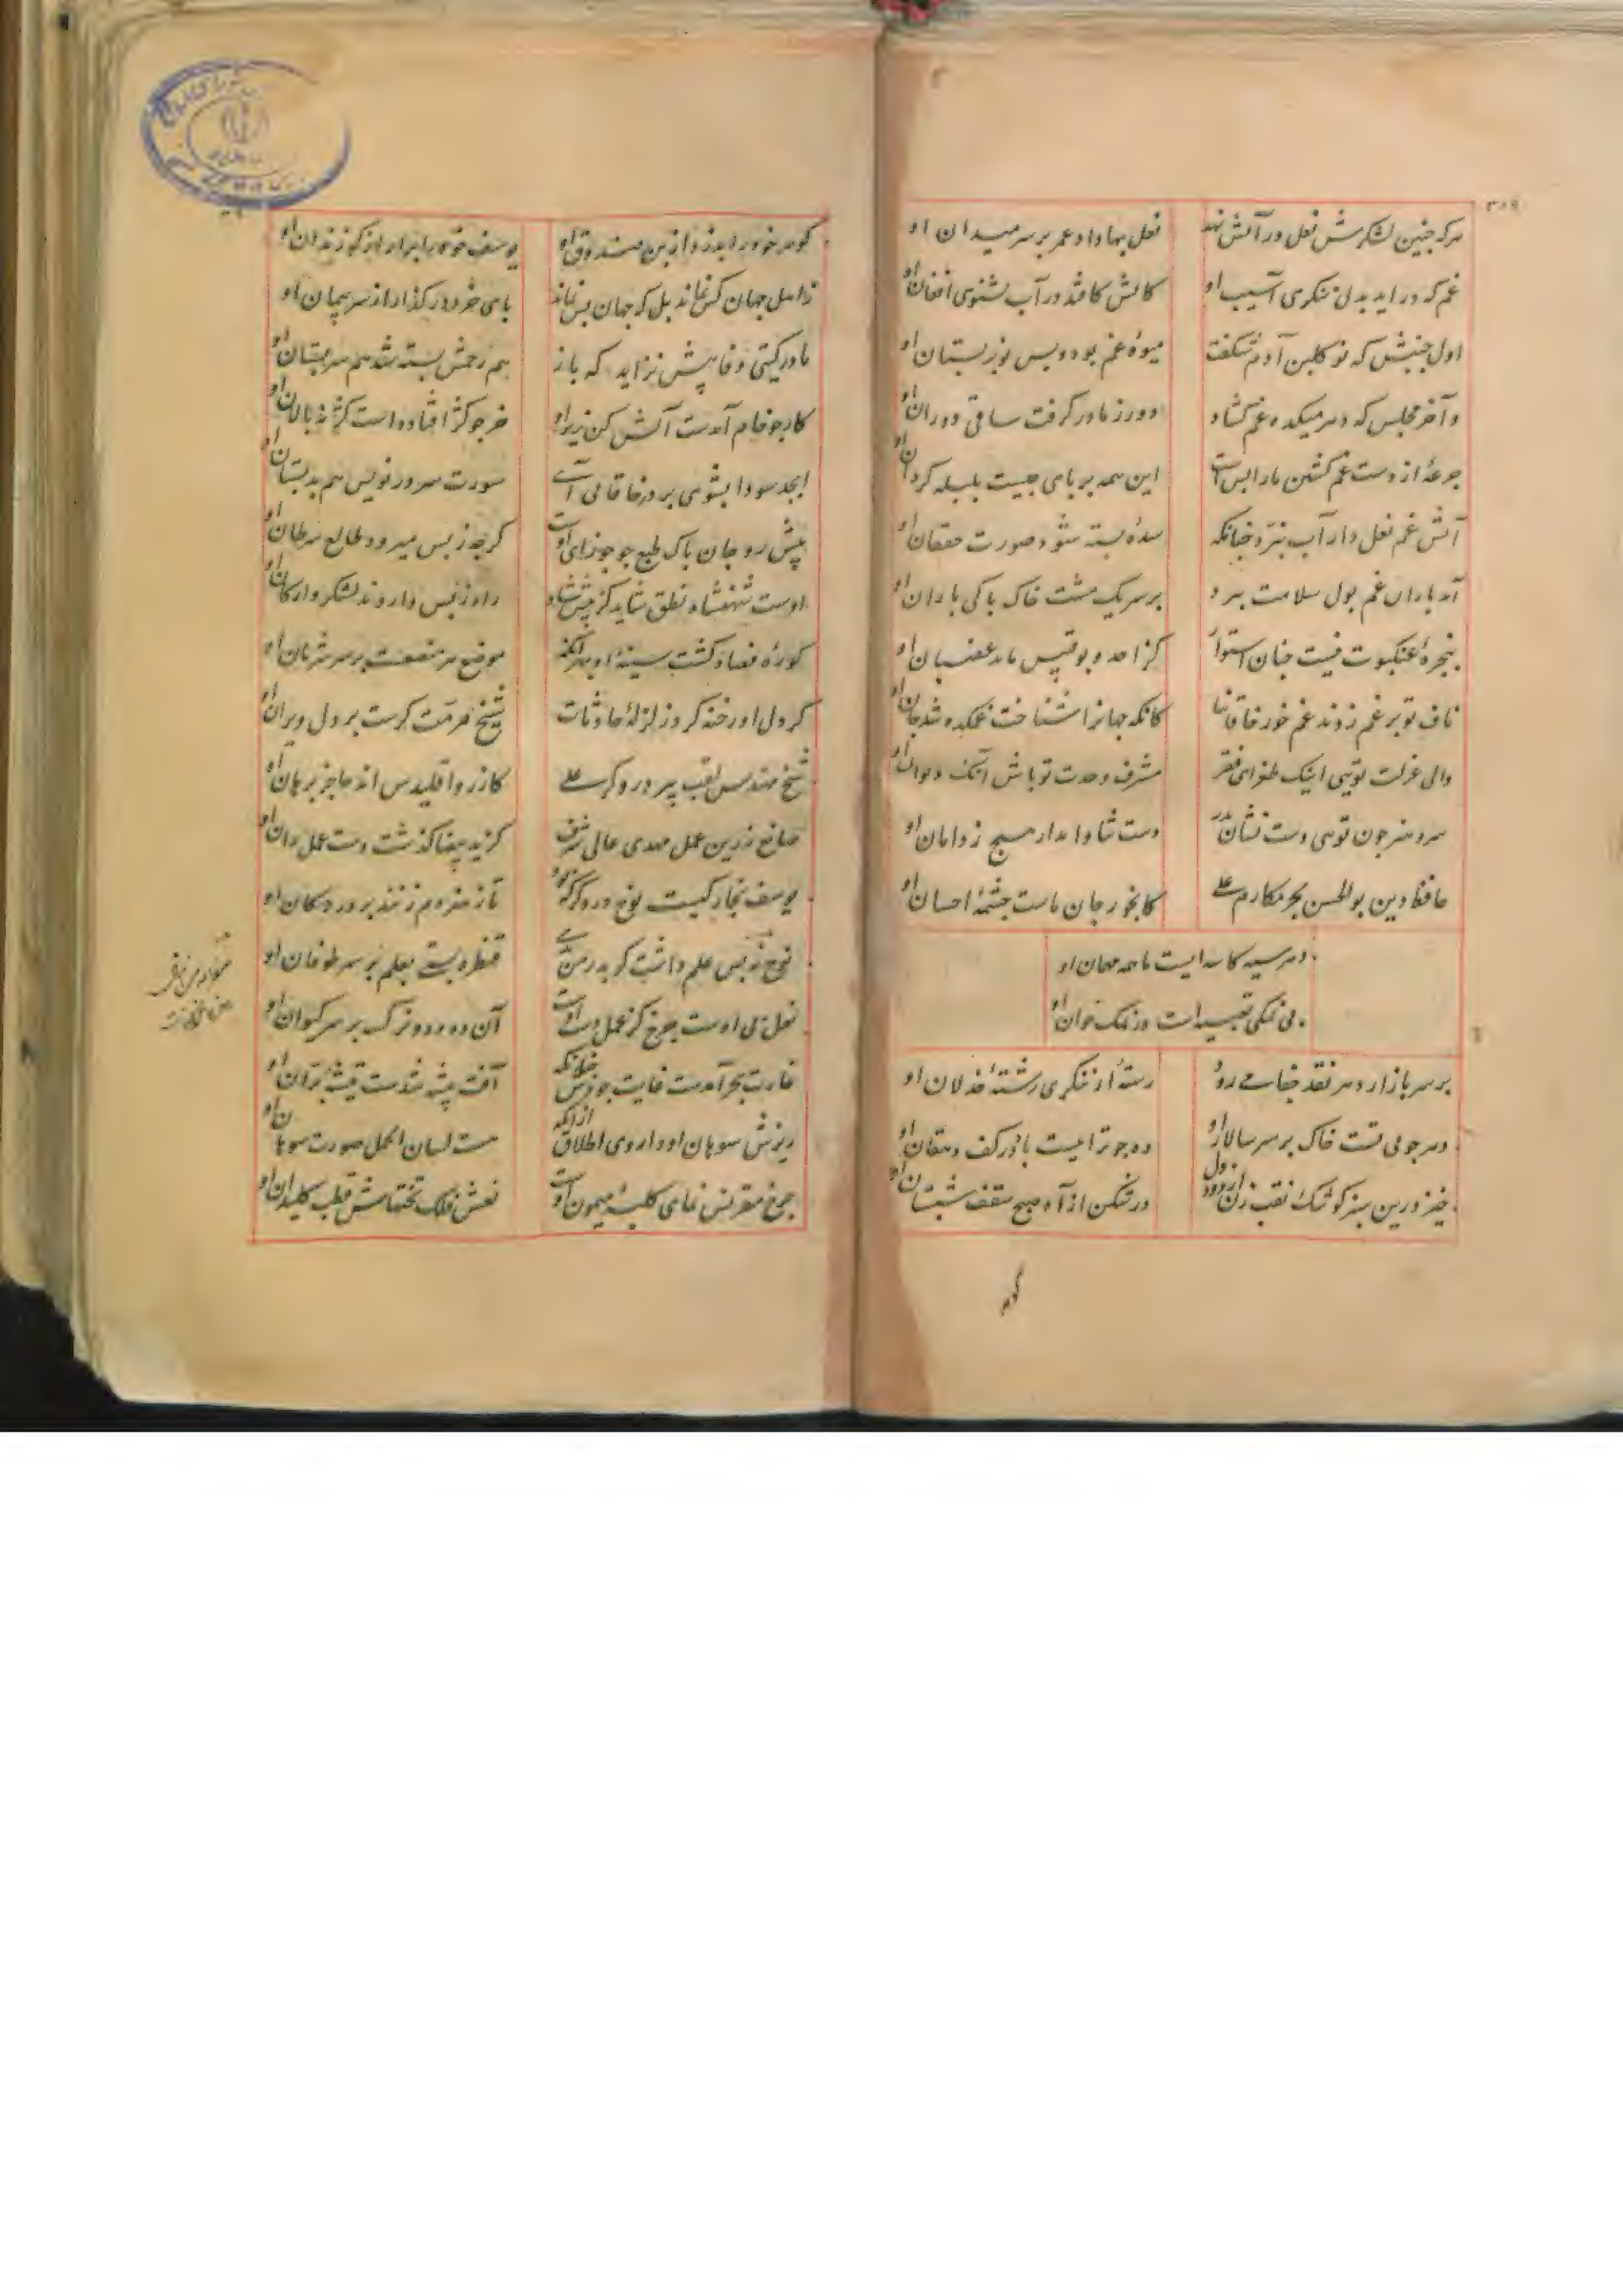 هرکه چنین لشکرش نعل در آتش نهد
نعل بها داد عمر بر سر میدان او
غم که در آید بدل ننگری آسیب او
کاتش کافتد در آب بشنوی افغان او
اول جنبش که نو گلبن آدم شکفت
میوهٔ غم بود و بس نوبر بستان او
و آخر مجلس که دهر میکده غم گشاد
دور ز ما در گرفت ساقی دوران او
جرعهٔ از دست غم کشتن ما را بس است
این همه بر پای چیست بلبله گردان او
آتش غم نعل دار آب ببرد چنانکه
سده بسته شود صورت حقنان او
آمد باران غم پول سلامت ببرد
بر سر یک مشت خاک تا کی باران او
پنجرهٔ عنکبوت نیست چنان استوار
کز احد و بوقبیس باید
ناف تو بر غم زدند غم خور خاقانیا
کانکه جهان را شناخت غمکده شد جان او
والی عزلت تویی اینک طغرای فقر
مشرف وحدت تو باش آنک دیوان او
سرو هنر چون تویی دست نشان پدر
دست ثنا وا مدار هیچ ز دامان او
حافظ دین بوالحسن بحر مکارم علی
کابخور جان ماست چشمهٔ احسان او
دهر سیه کاسه ایست ما همه مهمان او
بی نمکی تعبیه است در نمک خوان او
بر سر بازار دهر نقد جفا می رود
رستهٔ او ننگری رستهٔ خذلان او
دهر چو بی تست خاک بر سر سالار او
ده چو ترا نیست باد در کف دهقان او
خیز درین سبز کوشک نقب زن از دود دل
درشکن از آه صبح سقف شبستان او
گوهر
گوهر خود را بدزد از بن صندوق او
یوسف خود را برآر از که زندان او
ز اهل جهان کس نماند بل که جهان بس نماند
پای خرد در گذار از سر پیمان او
مادر گیتی وفا بیش نزاید که باز
هم رحمش بسته شد هم سر پستان او
کار جو خام آمدست آتش کن زیر او
خر چو کژ افتاده است کژ نه پالان او
ابجد سودا بشوی بر در خاقانی آی
سورت سر در نویس هم به دبستان او
پیش رو جان پاک طبع چو جوزای اوست
گرچه ز پس میرود طالع سرطان او
اوست شهنشاه نطق شاید گر پیش شاه
راه ز پس داروند لشکر و ارکان او
کورهٔ فصاد گشت سینهٔ او بهر آنکه
موضع هر مبضع است بر سر شریان او
گر دل او رخنه کرد زلزلهٔ حادثات
شیخ مرمت گر است بر دل ویران او
شیخ مهندس لقب پیر دروگر علی
کازر و اقلیدس اند عاجز برهان او
صانع زرین عمل مهدی عالی شرف
کز ید بیضا گذشت دست عمل دان او
یوسف نجار کیست نوح دروگر که بود
تا ز هنر دم زنند بر در دکان او
نوح نه بس علم داشت گر پدر من بدی
قنطره بستی بعلم بر سر طوفان او
نعل پی اوست چرخ کز عمل دست اوست
آن ده و دو ترک بر سر کیوان او
غارت بحر آمدست غایت جودش چنانکه
آفت بیشه شدست تیشهٔ بران او
ریزش سوهان او داروی اطلاق از آنکه
هست لسان الحمل صورت سوهان او
چرخ مقرنس نمای کلبهٔ میمون اوست
نعش فلک تختهاش قطب کلیدان او